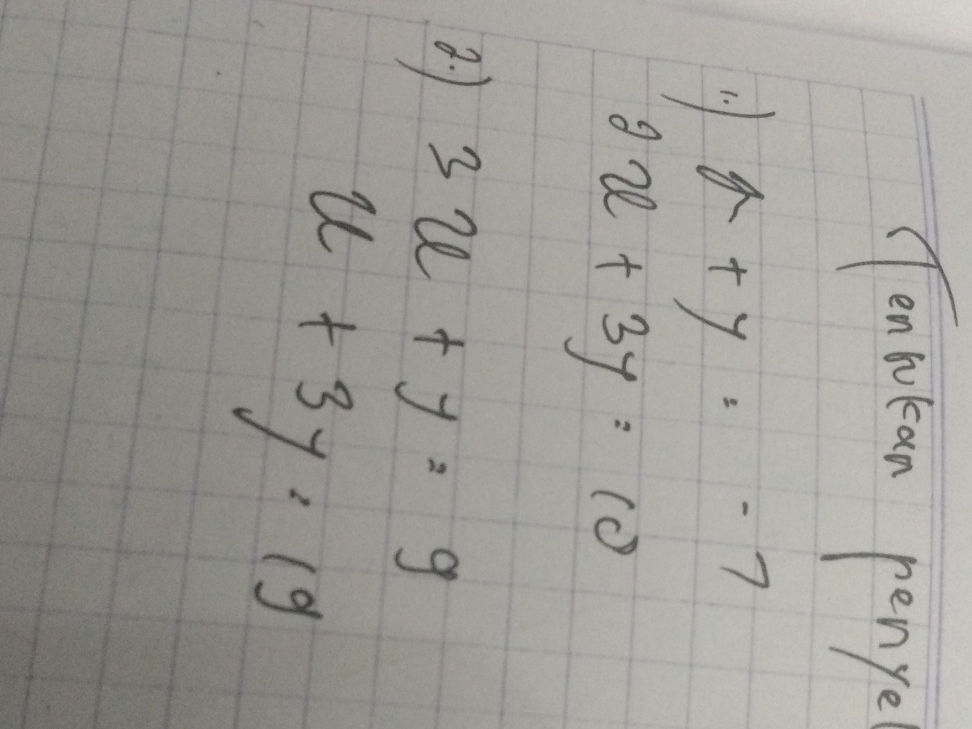 Tentukan penyel
1.) x + y = -7
2x + 3y = 10
2.) 3x + y = 9
x + 3y = 19